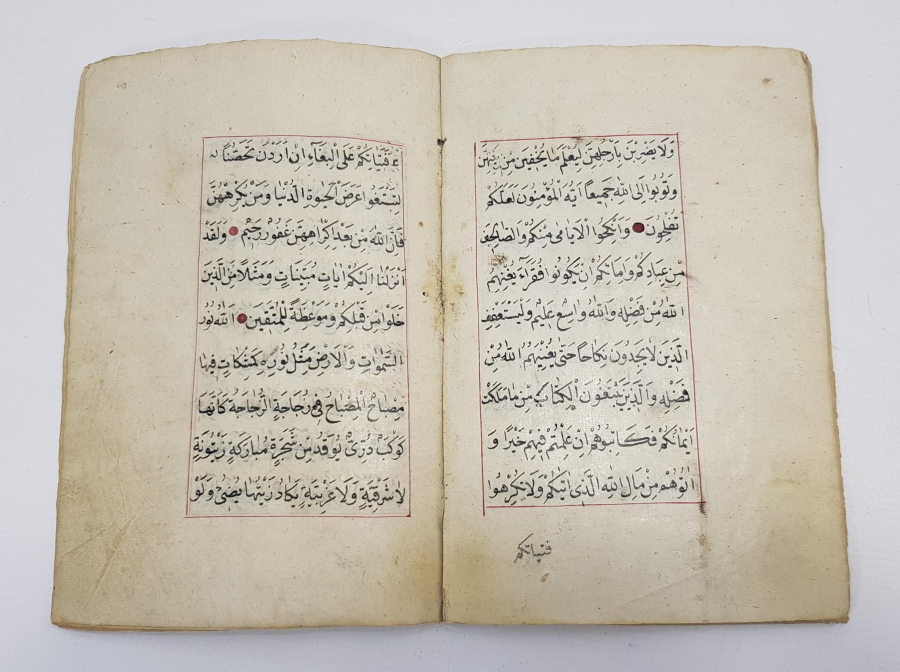 وَلَا يَضْرِبْنَ بِاَرْجُلِهِنَّ لِيُعْلَمَ مَا يُخْفِينَ مِنْ زِينَتِهِنَّ
وَتُوبُوا اِلَى اللّٰهِ جَمِيعاً اَيُّهَ الْمُؤْمِنُونَ لَعَلَّكُمْ
تُفْلِحُونَ وَاَنْكِحُوا الْاَيَامٰى مِنْكُمْ وَالصَّالِحِينَ
مِنْ عِبَادِكُمْ وَاِمَائِكُمْ اِنْ يَكُونُوا فُقَرَاءَ يُغْنِهِمُ
اللّٰهُ مِنْ فَضْلِهِ وَاللّٰهُ وَاسِعٌ عَلِيمٌ وَلْيَسْتَعْفِفِ
الَّذِينَ لَا يَجِدُونَ نِكَاحاً حَتّٰى يُغْنِيَهُمُ اللّٰهُ مِنْ
فَضْلِهِ وَالَّذِينَ يَبْتَغُونَ الْكِتَابَ مِمَّا مَلَكَتْ
اَيْمَانُكُمْ فَكَاتِبُوهُمْ اِنْ عَلِمْتُمْ فِيهِمْ خَيْراً وَ
اٰتُوهُمْ مِنْ مَالِ اللّٰهِ الَّذِى اٰتٰيكُمْ وَلَا تُكْرِهُوا
فتياتكم
فَتَيَاتِكُمْ عَلَى الْبِغَاءِ اِنْ اَرَدْنَ تَحَصُّناً
لِتَبْتَغُوا عَرَضَ الْحَيٰوةِ الدُّنْيَا وَمَنْ يُكْرِهْهُنَّ
فَاِنَّ اللّٰهَ مِنْ بَعْدِ اِكْرَاهِهِنَّ غَفُورٌ رَحِيمٌ وَلَقَدْ
اَنْزَلْنَا اِلَيْكُمْ اٰيَاتٍ مُبَيِّنَاتٍ وَمَثَلاً مِنَ الَّذِينَ
خَلَوْا مِنْ قَبْلِكُمْ وَمَوْعِظَةً لِلْمُتَّقِينَ اَللّٰهُ نُورُ
السَّمٰوَاتِ وَالْاَرْضِ مَثَلُ نُورِهِ كَمِشْكَاتٍ فِيهَا
مِصْبَاحٌ الْمِصْبَاحُ فِى زُجَاجَةٍ الزُّجَاجَةُ كَاَنَّهَا
كَوْكَبٌ دُرِّىٌّ يُوقَدُ مِنْ شَجَرَةٍ مُبَارَكَةٍ زَيْتُونَةٍ
لَا شَرْقِيَّةٍ وَلَا غَرْبِيَّةٍ يَكَادُ زَيْتُهَا يُضِىءُ وَلَوْ